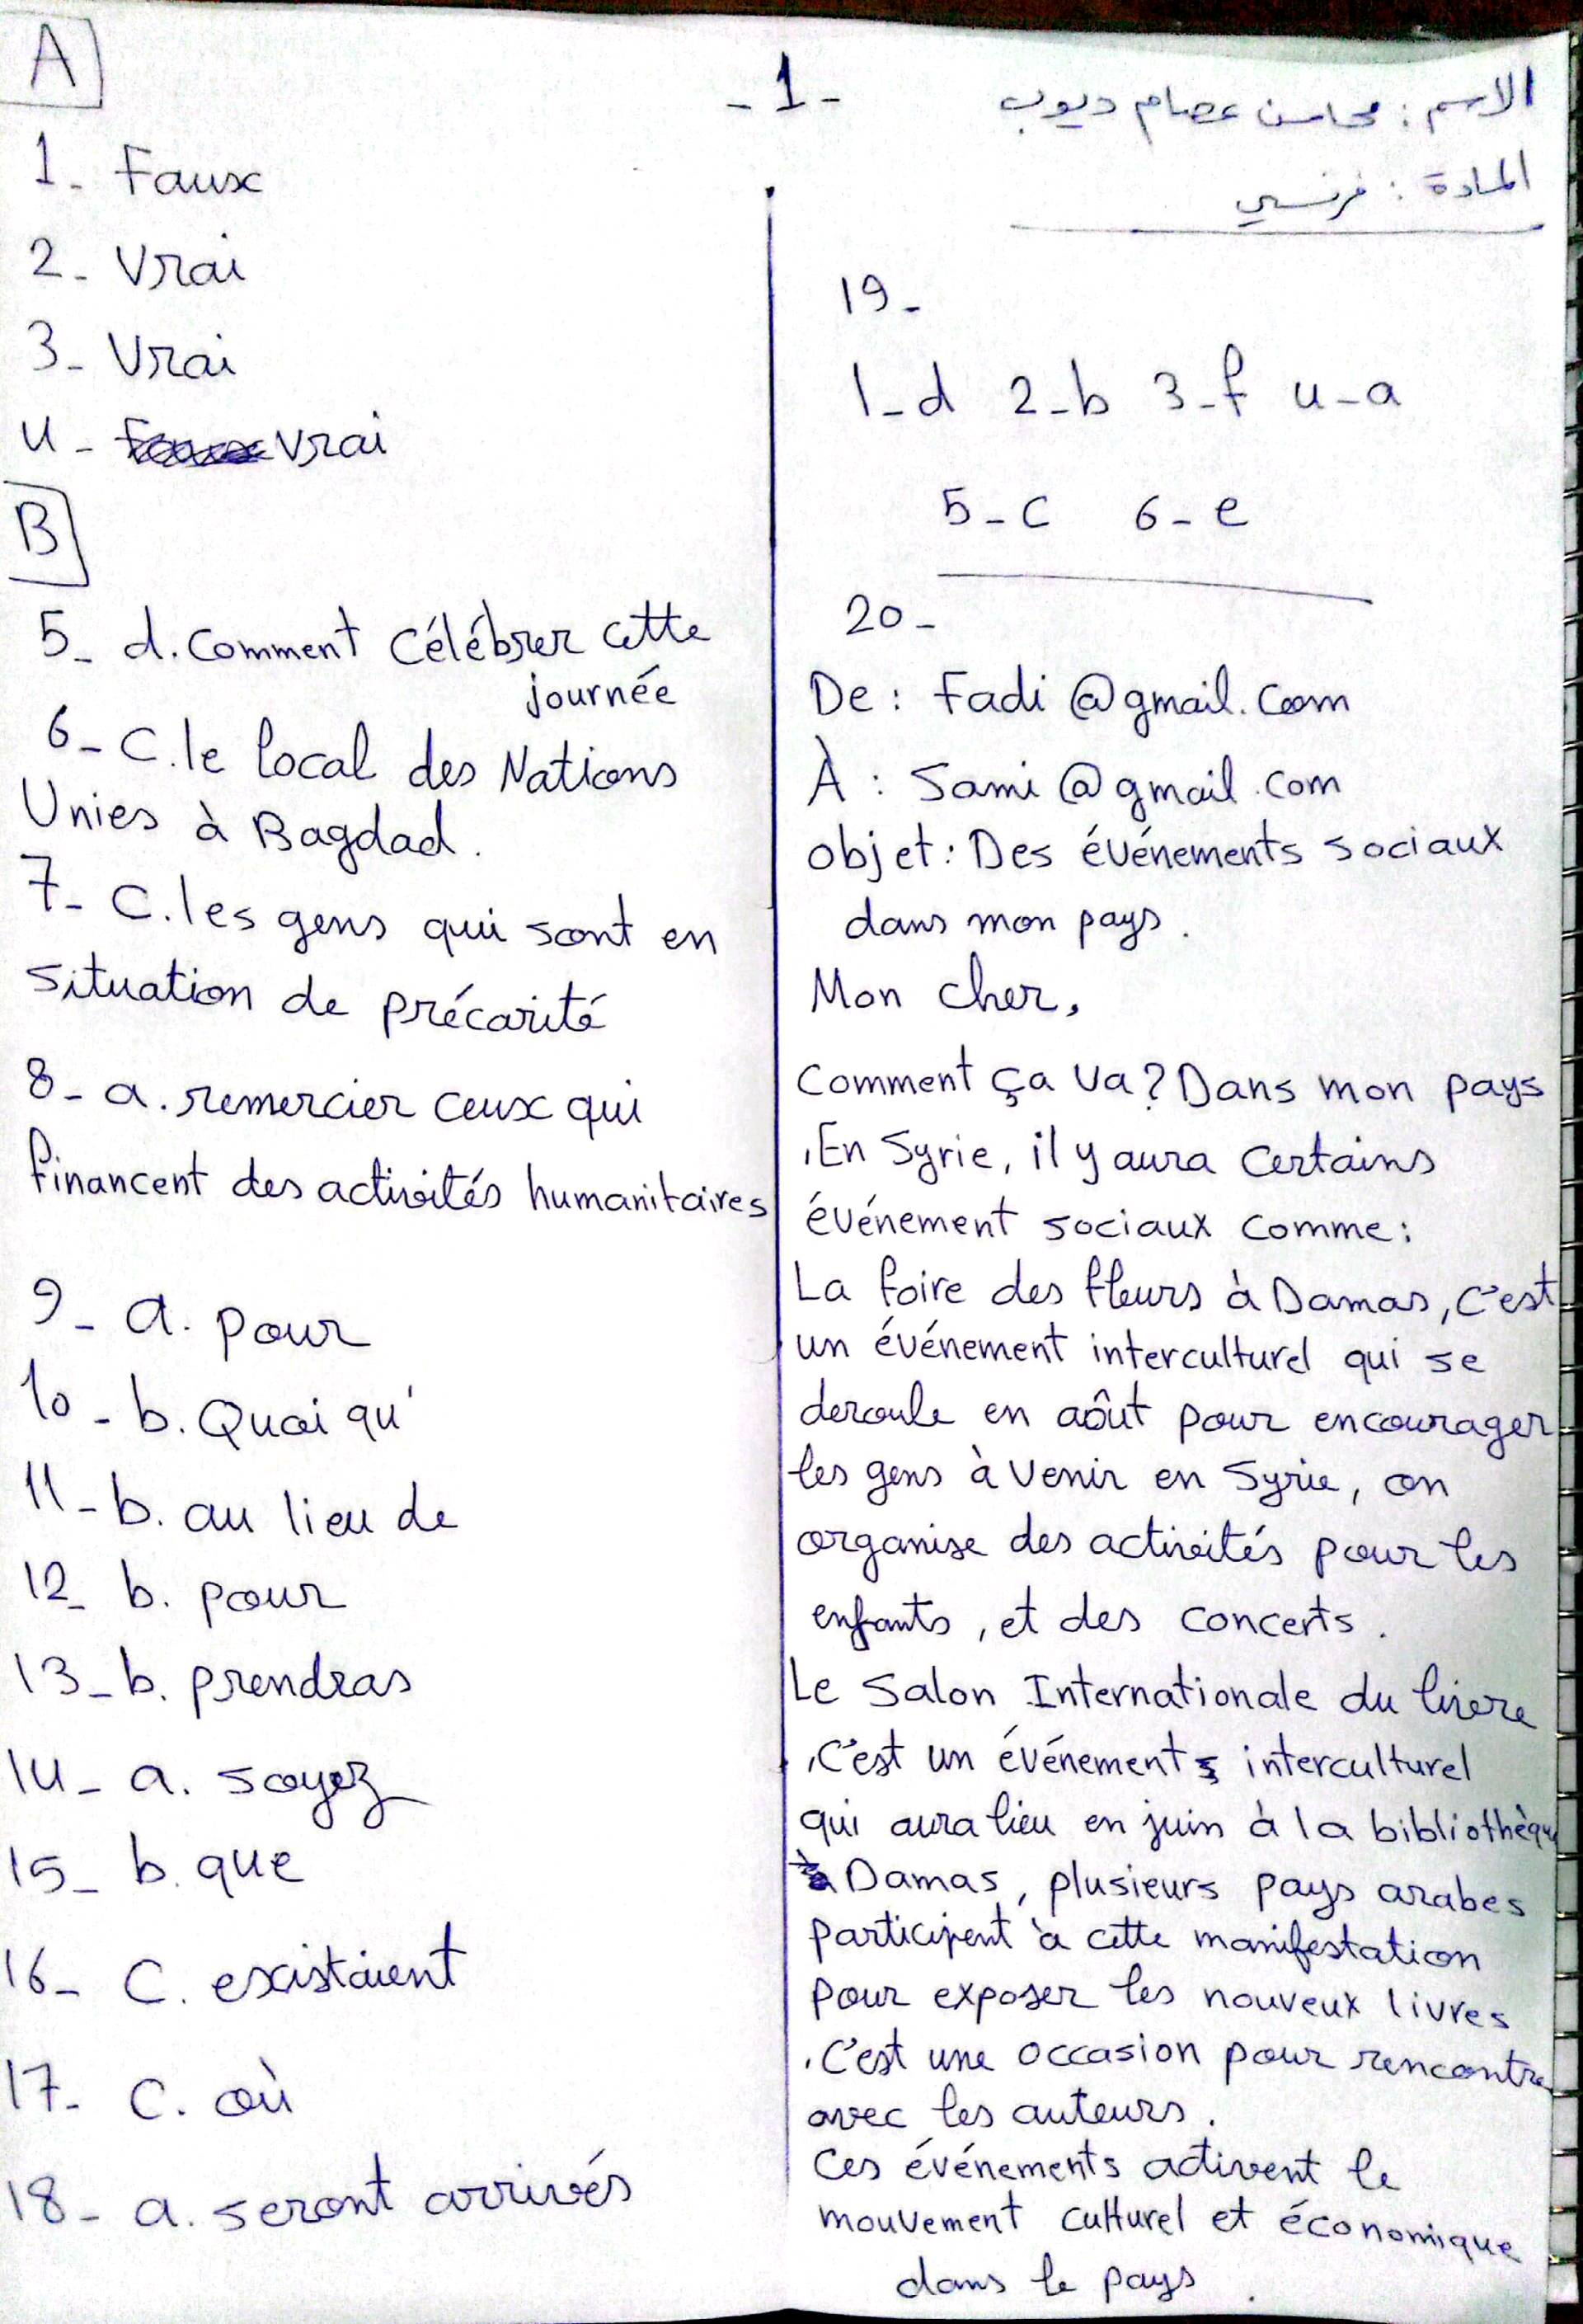 - 1 -
الاسم : محاسن عصام ديوب
المادة : فرنسي
A
1- Faux
2- Vrai
3- Vrai
4- Vrai
B
5- d. Comment célébrer cette
journée
6- C. le local des Nations
Unies à Bagdad.
7- C. les gens qui sont en
situation de précarité
8- a. remercier ceux qui
financent des activités humanitaires
9- a. pour
10- b. Quoi qu'
11- b. au lieu de
12- b. pour
13- b. prendras
14- a. soyez
15- b. que
16- C. existaient
17- C. où
18- a. seront arrivés
19-
1-d 2-b 3-f 4-a
5-c 6-e
20-
De : Fadi @gmail.com
À : Sami @gmail.com
objet : Des événements sociaux
dans mon pays.
Mon cher,
Comment ça va? Dans mon pays
, En Syrie, il y aura certains
événement sociaux comme :
La foire des fleurs à Damas, c'est
un événement interculturel qui se
deroule en aôut pour encourager
les gens à venir en Syrie, on
organise des activités pour les
enfants, et des concerts.
Le Salon Internationale du livre
, c'est un événement interculturel
qui aura lieu en juin à la bibliothèque
à Damas, plusieurs pays arabes
participent à cette manifestation
pour exposer les nouveux livres
. C'est une occasion pour rencontre
avec les auteurs.
Ces événements activent le
mouvement culturel et économique
dans le pays.